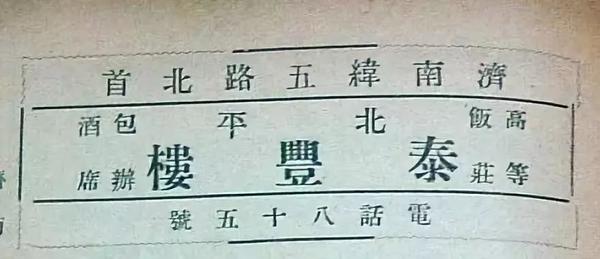 濟南緯五路北首
高等
飯莊
北平
泰豐樓
包辦
酒席
電話八十五號